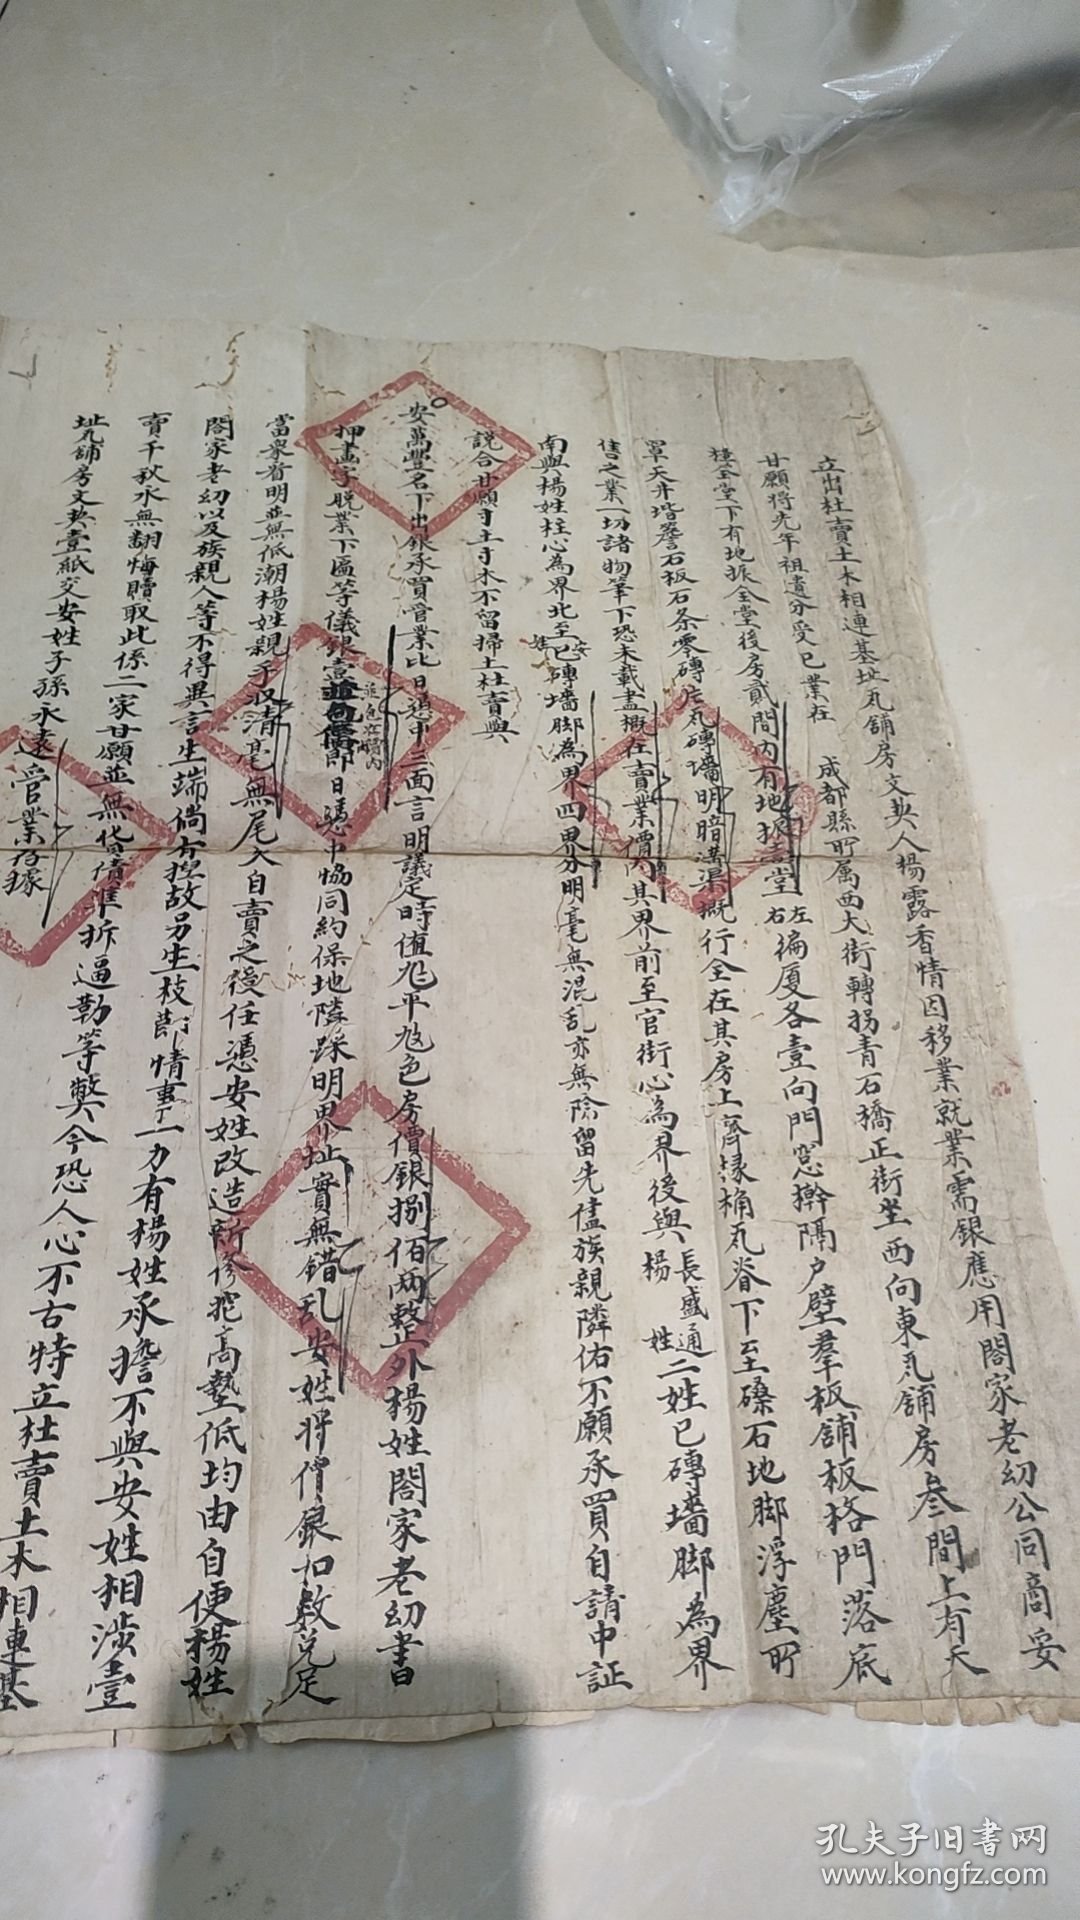 立出杜賣土木相連基址瓦舖房文契人楊露香情因移業就業需銀應用閤家老幼公同商妥
甘願將先年祖遺分受已業在 成都縣所属西大街轉拐青石橋正街坐西向東瓦舖房叁間上有天
樓全堂下有地振全堂後房貳間內有地振壹堂左右徧厦各壹向門窓擀隔户壁羣板舖板格門落底
罩天井堦簷石板石条零磚片瓦磚墻明暗溝渠概行全在其房上齊椽桷瓦脊下至磉石地脚浮塵所
售之業一切諸物筆下恐未載盡概在賣業價內其界前至官街心為界後與楊姓長盛通二姓已磚墻脚為界
南與楊姓柱心為界北至安姓已磚墻脚為界四界分明毫無混乱亦無除留先儘族親隣佑不願承買自請中証
說合甘願寸土寸木不留掃土杜賣與
安萬豐名下出銀承買管業比日憑中三面言明議定時值九平九色房價銀捌佰両整外楊姓閤家老幼書
押畫字脱業下匾等儀銀壹並包在價內即日憑中協同約保地隣踩明界址實無錯乱安姓將價銀如数兑足
當眾省明並無低潮楊姓親手收清毫無尾欠自賣之後任憑安姓改造新修挖高墊低均由自便楊姓
閤家老幼以及族親人等不得異言生端倘有捏故另生枝節情事一力有楊姓承擔不與安姓相涉壹
賣千秋永無翻悔贖取此係二家甘願並無貨債準拆逼勒等弊今恐人心不古特立杜賣土木相連基
址瓦舖房文契壹紙交安姓子孫永遠管業存據
孔夫子旧書网
www.kongfz.com